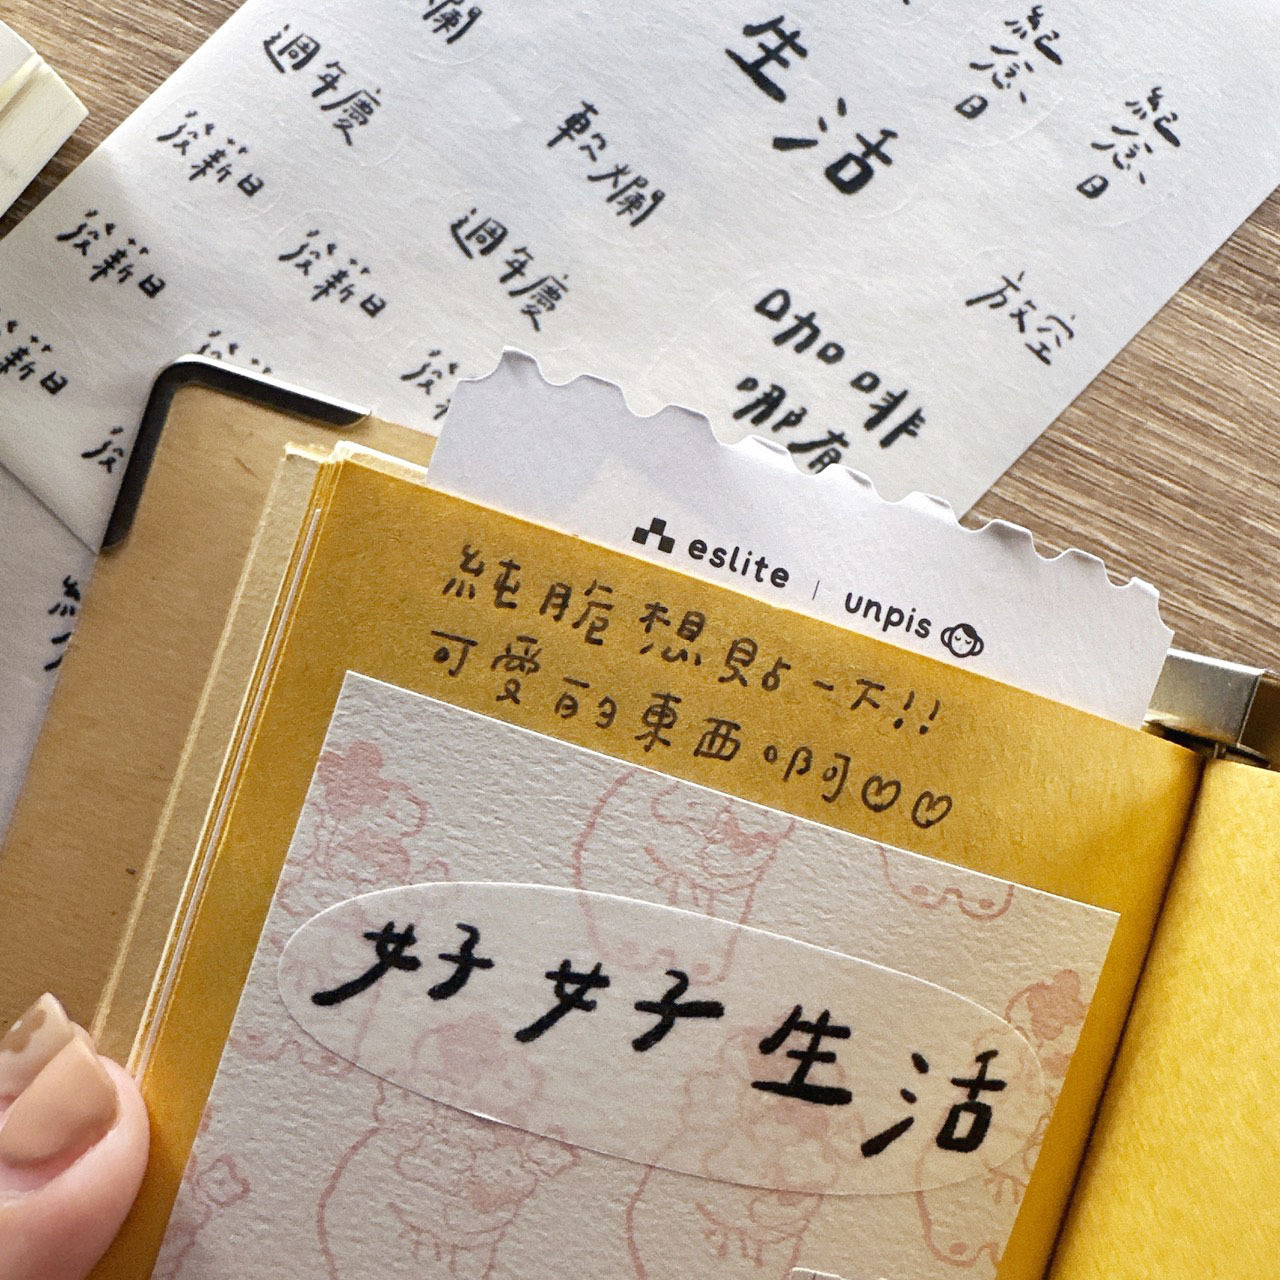 爛
週年慶
發薪日
發薪日
發薪日
薪日
軟爛
週年慶
生活
紀念日
紀念日
放空
咖啡
哪有
eslite | unpis
純脆想貼一下!!
可愛的東西啊♡♡
好好生活